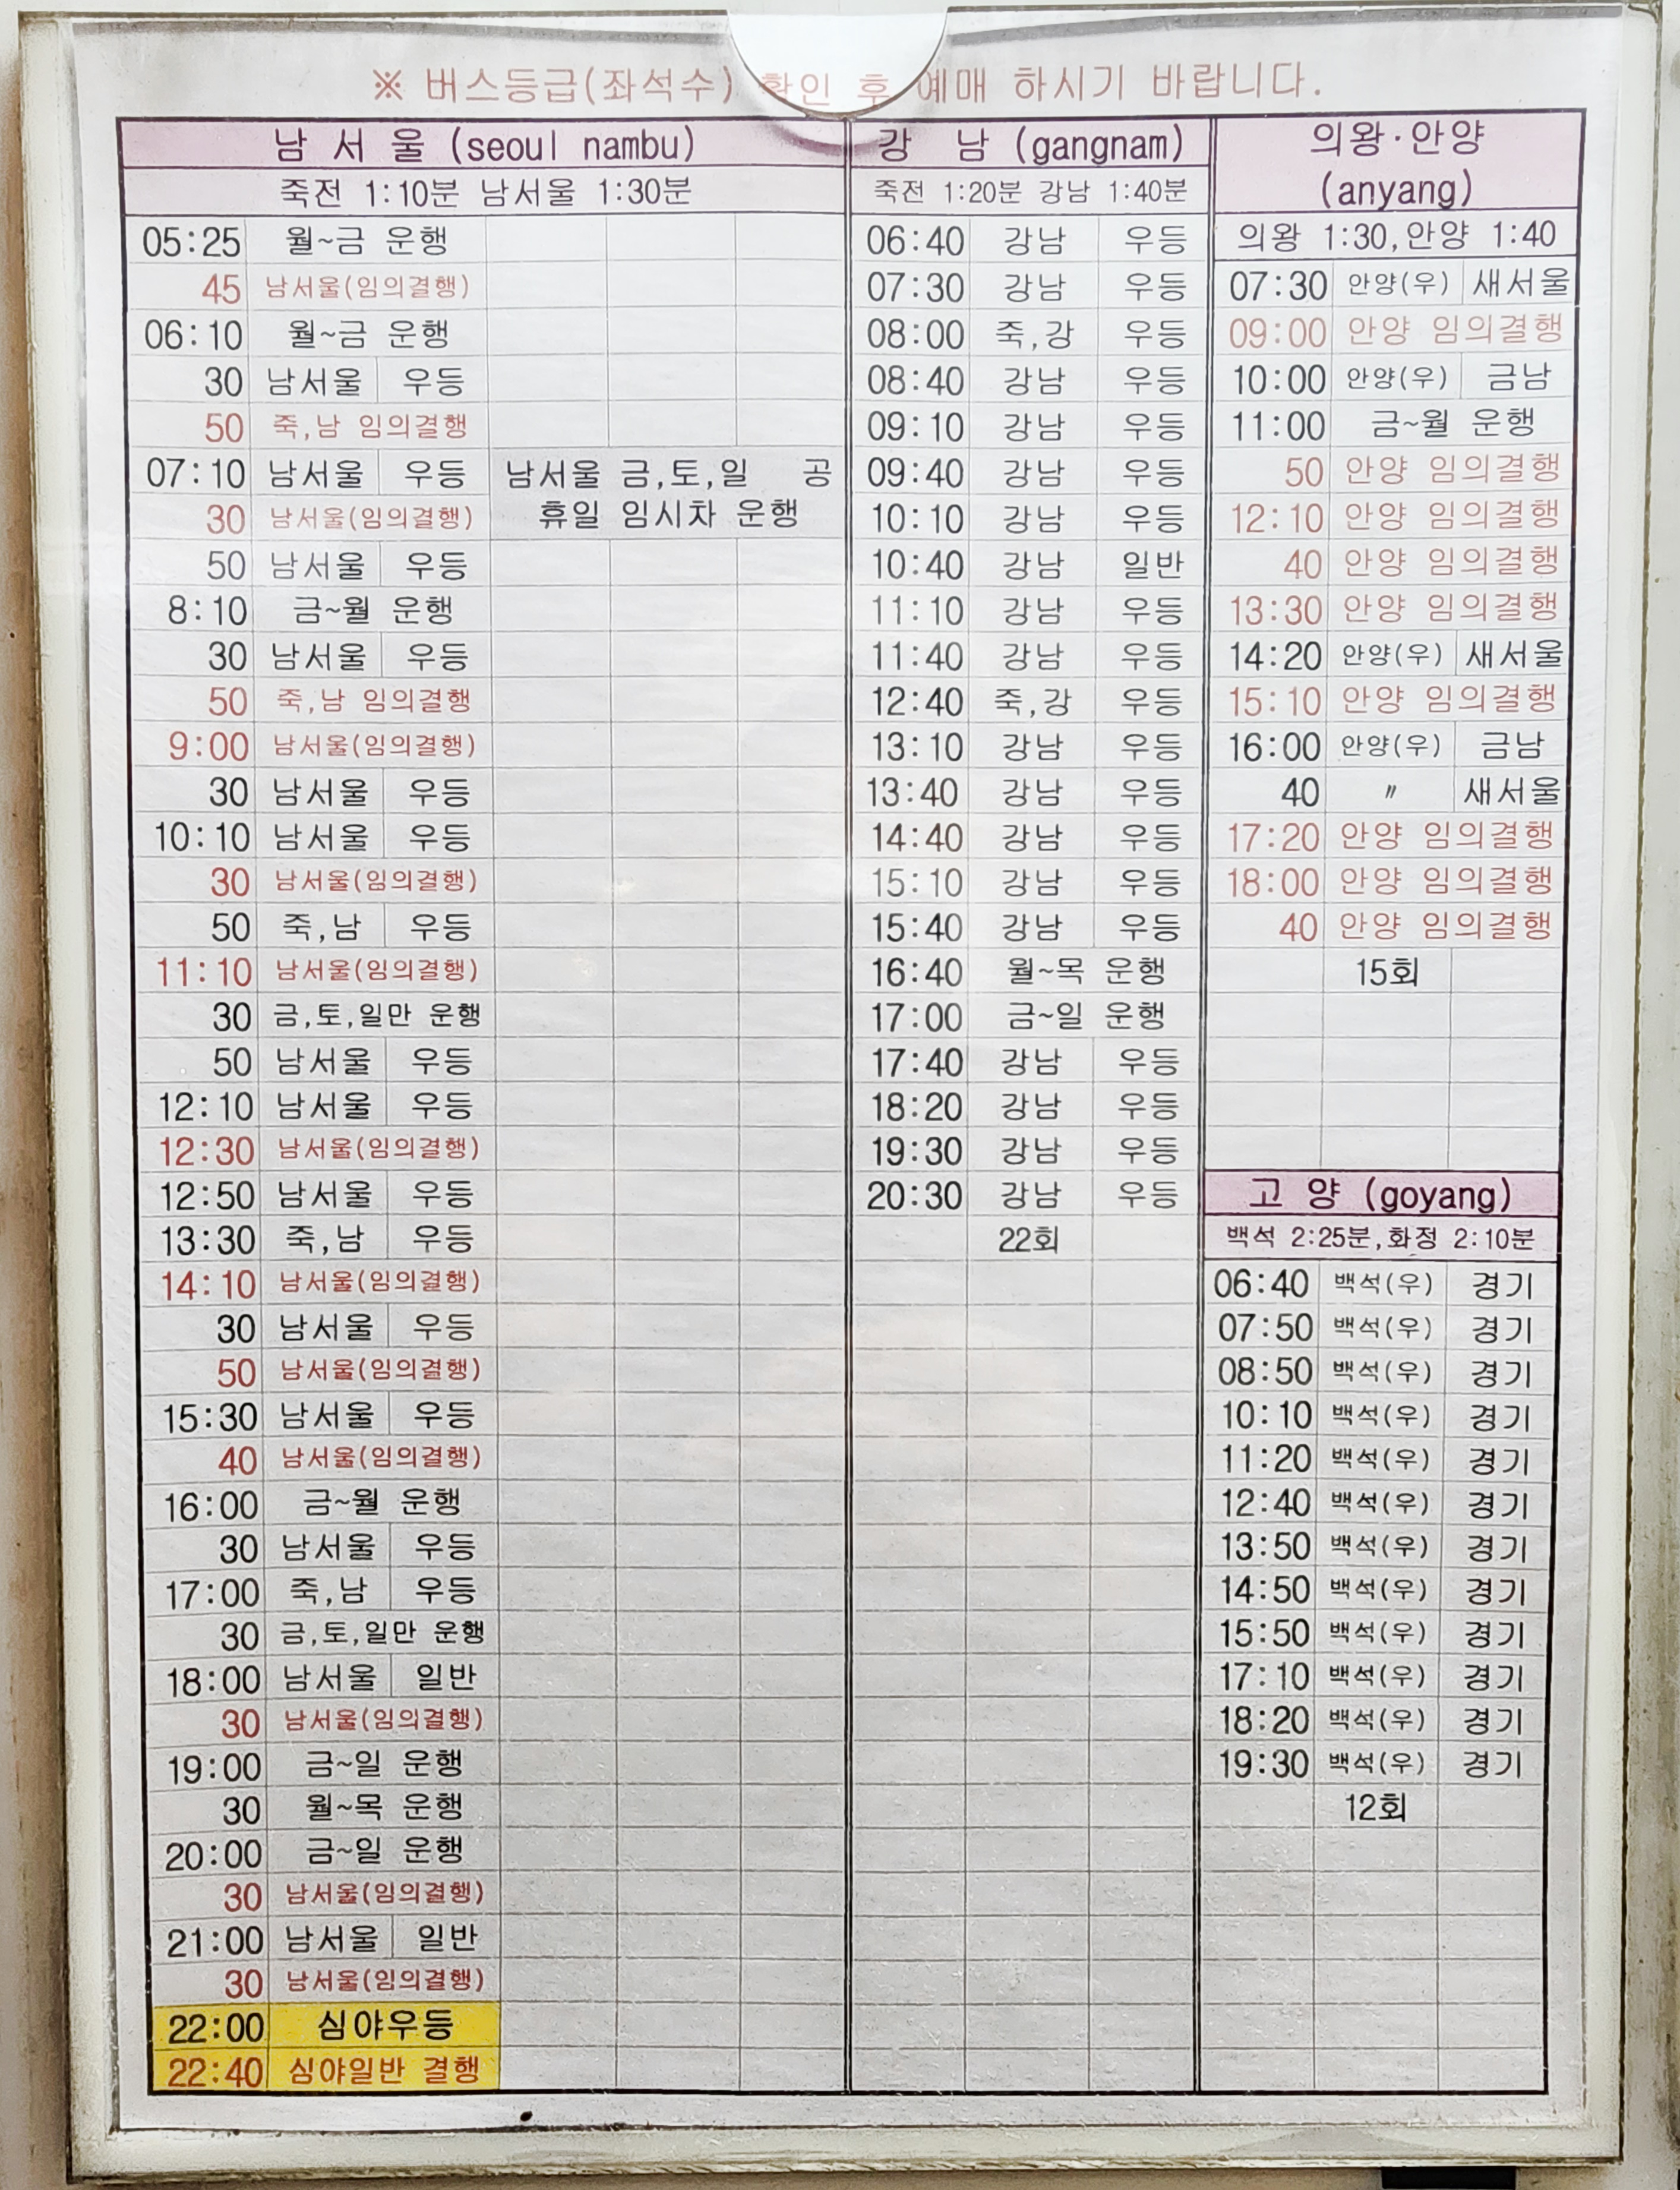 ※ 버스등급(좌석수) 확인 후 예매 하시기 바랍니다.
남 서 울 (seoul nambu)
죽전 1:10분 남서울 1:30분
05:25 월~금 운행
45 남서울(임의결행)
06:10 월~금 운행
30 남서울 우등
50 죽,남 임의결행
07:10 남서울 우등 남서울 금,토,일 공
30 남서울(임의결행) 휴일 임시차 운행
50 남서울 우등
8:10 금~월 운행
30 남서울 우등
50 죽,남 임의결행
9:00 남서울(임의결행)
30 남서울 우등
10:10 남서울 우등
30 남서울(임의결행)
50 죽,남 우등
11:10 남서울(임의결행)
30 금,토,일만 운행
50 남서울 우등
12:10 남서울 우등
12:30 남서울(임의결행)
12:50 남서울 우등
13:30 죽,남 우등
14:10 남서울(임의결행)
30 남서울 우등
50 남서울(임의결행)
15:30 남서울 우등
40 남서울(임의결행)
16:00 금~월 운행
30 남서울 우등
17:00 죽,남 우등
30 금,토,일만 운행
18:00 남서울 일반
30 남서울(임의결행)
19:00 금~일 운행
30 월~목 운행
20:00 금~일 운행
30 남서울(임의결행)
21:00 남서울 일반
30 남서울(임의결행)
22:00 심야우등
22:40 심야일반 결행
강 남 (gangnam)
죽전 1:20분 강남 1:40분
06:40 강남 우등
07:30 강남 우등
08:00 죽,강 우등
08:40 강남 우등
09:10 강남 우등
09:40 강남 우등
10:10 강남 우등
10:40 강남 일반
11:10 강남 우등
11:40 강남 우등
12:40 죽,강 우등
13:10 강남 우등
13:40 강남 우등
14:40 강남 우등
15:10 강남 우등
15:40 강남 우등
16:40 월~목 운행
17:00 금~일 운행
17:40 강남 우등
18:20 강남 우등
19:30 강남 우등
20:30 강남 우등
22회
의왕·안양
(anyang)
의왕 1:30,안양 1:40
07:30 안양(우) 새서울
09:00 안양 임의결행
10:00 안양(우) 금남
11:00 금~월 운행
50 안양 임의결행
12:10 안양 임의결행
40 안양 임의결행
13:30 안양 임의결행
14:20 안양(우) 새서울
15:10 안양 임의결행
16:00 안양(우) 금남
40 〃 새서울
17:20 안양 임의결행
18:00 안양 임의결행
40 안양 임의결행
15회
고 양 (goyang)
백석 2:25분,화정 2:10분
06:40 백석(우) 경기
07:50 백석(우) 경기
08:50 백석(우) 경기
10:10 백석(우) 경기
11:20 백석(우) 경기
12:40 백석(우) 경기
13:50 백석(우) 경기
14:50 백석(우) 경기
15:50 백석(우) 경기
17:10 백석(우) 경기
18:20 백석(우) 경기
19:30 백석(우) 경기
12회